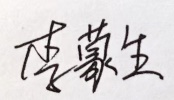 李蒙生